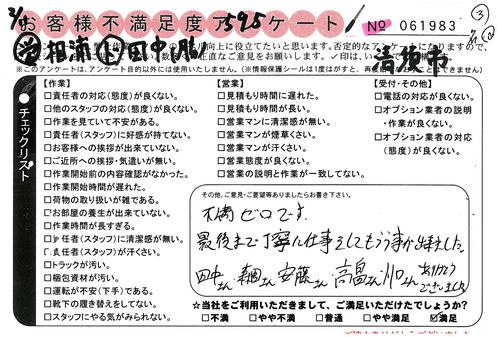 お客様不満足度アンケート
595
No 061983
③
相浦 田中
清須市
【作業】
□責任者の対応(態度)が良くない。
□他のスタッフの対応(態度)が良くない。
□作業を見ていて不安がある。
□責任者(スタッフ)に好感が持てない。
□お客様への挨拶が出来ていない。
□ご近所への挨拶・気遣いが無い。
□作業開始前の内容確認がなかった。
□作業開始時間が遅れた。
□荷物の取り扱いが雑である。
□お部屋の養生が出来ていない。
□作業時間が長すぎる。
責任者(スタッフ)に清潔感が無い。
責任者(スタッフ)が汗くさい。
□トラックが汚い。
□梱包資材が汚い。
□運転が不安(下手)である。
□靴下の履き替えをしてない。
□スタッフにやる気がみられない。
【営業】
□見積もり時間に遅れた。
□見積もり時間が長い。
□営業マンに清潔感が無い。
□営業マンが煙草くさい。
□営業マンが汗くさい。
□営業態度が良くない。
□営業の説明と作業が一致してない。
【受付・その他】
□電話の対応が良くない。
□オプション業者の説明
・作業が良くない。
□オプション業者の対応
(態度)が良くない。
チェックリスト
その他、ご意見・ご要望等ありましたらお書き下さい。
不満ゼロです。
最後まで丁寧に仕事をしてもらう事が出来ました。
田中さん 安藤さん 高畠さん 川口さん ありがとうございました
☆当社をご利用いただきまして、ご満足いただけたでしょうか?
□不満 □やや不満 □普通 □やや満足 ☑満足